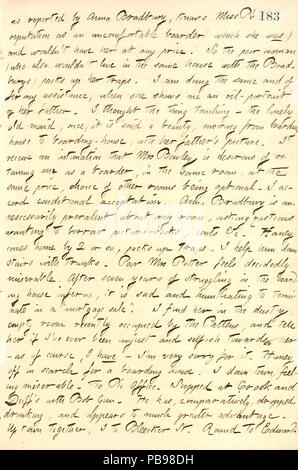 as reported by Anna Bradbury, knows Miss P's 183
reputation as an uncomfortable boarder which she was)
and wouldn't have her at any price. So the poor woman
(who also wouldn't live in the same house with the Brad-
burys) packs up her traps. I am doing the same and of-
fer my assistance, when she shows me an oil-portrait
of her father. I thought the thing touching - the lonely
old maid, once, it is said a beauty, moving from boarding
house to boarding-house, with her father's picture. I
receive an intimation that Mrs Bewley is desirous of re-
taining me as a boarder, in the same room, at the
same price, choice of other rooms being optional. I ac-
cord conditional acceptation. Anna Bradbury is un-
necessarily prevalent about my room, asking questions
wanting to borrow picture-books, &c. Haney
comes home by 2 or so, packs up traps. I help him down
stairs with trunks. Poor Mrs Potter feels decidedly
miserable. After seven years of struggling in the board-
ing house inferno, it is sad and humiliating to termi-
nate in a mortgage sale. I find her in the dusty
empty room recently occupied by the Pattens, and tell
her if I've ever been unjust and selfish towards her
- as of course, I have - I'm very sorry for it. Haney
off in search for a boarding house. I down town, feel-
ing miserable. To Pic Office. Stopped at Crook and
Duff's with Bob Gun. He has, comparatively, dropped
drinking, and appears to much greater advantage.
Up town together, I to Bleecker St. Round to Edwards'
alamy
Image ID: PB98DH
www.alamy.com